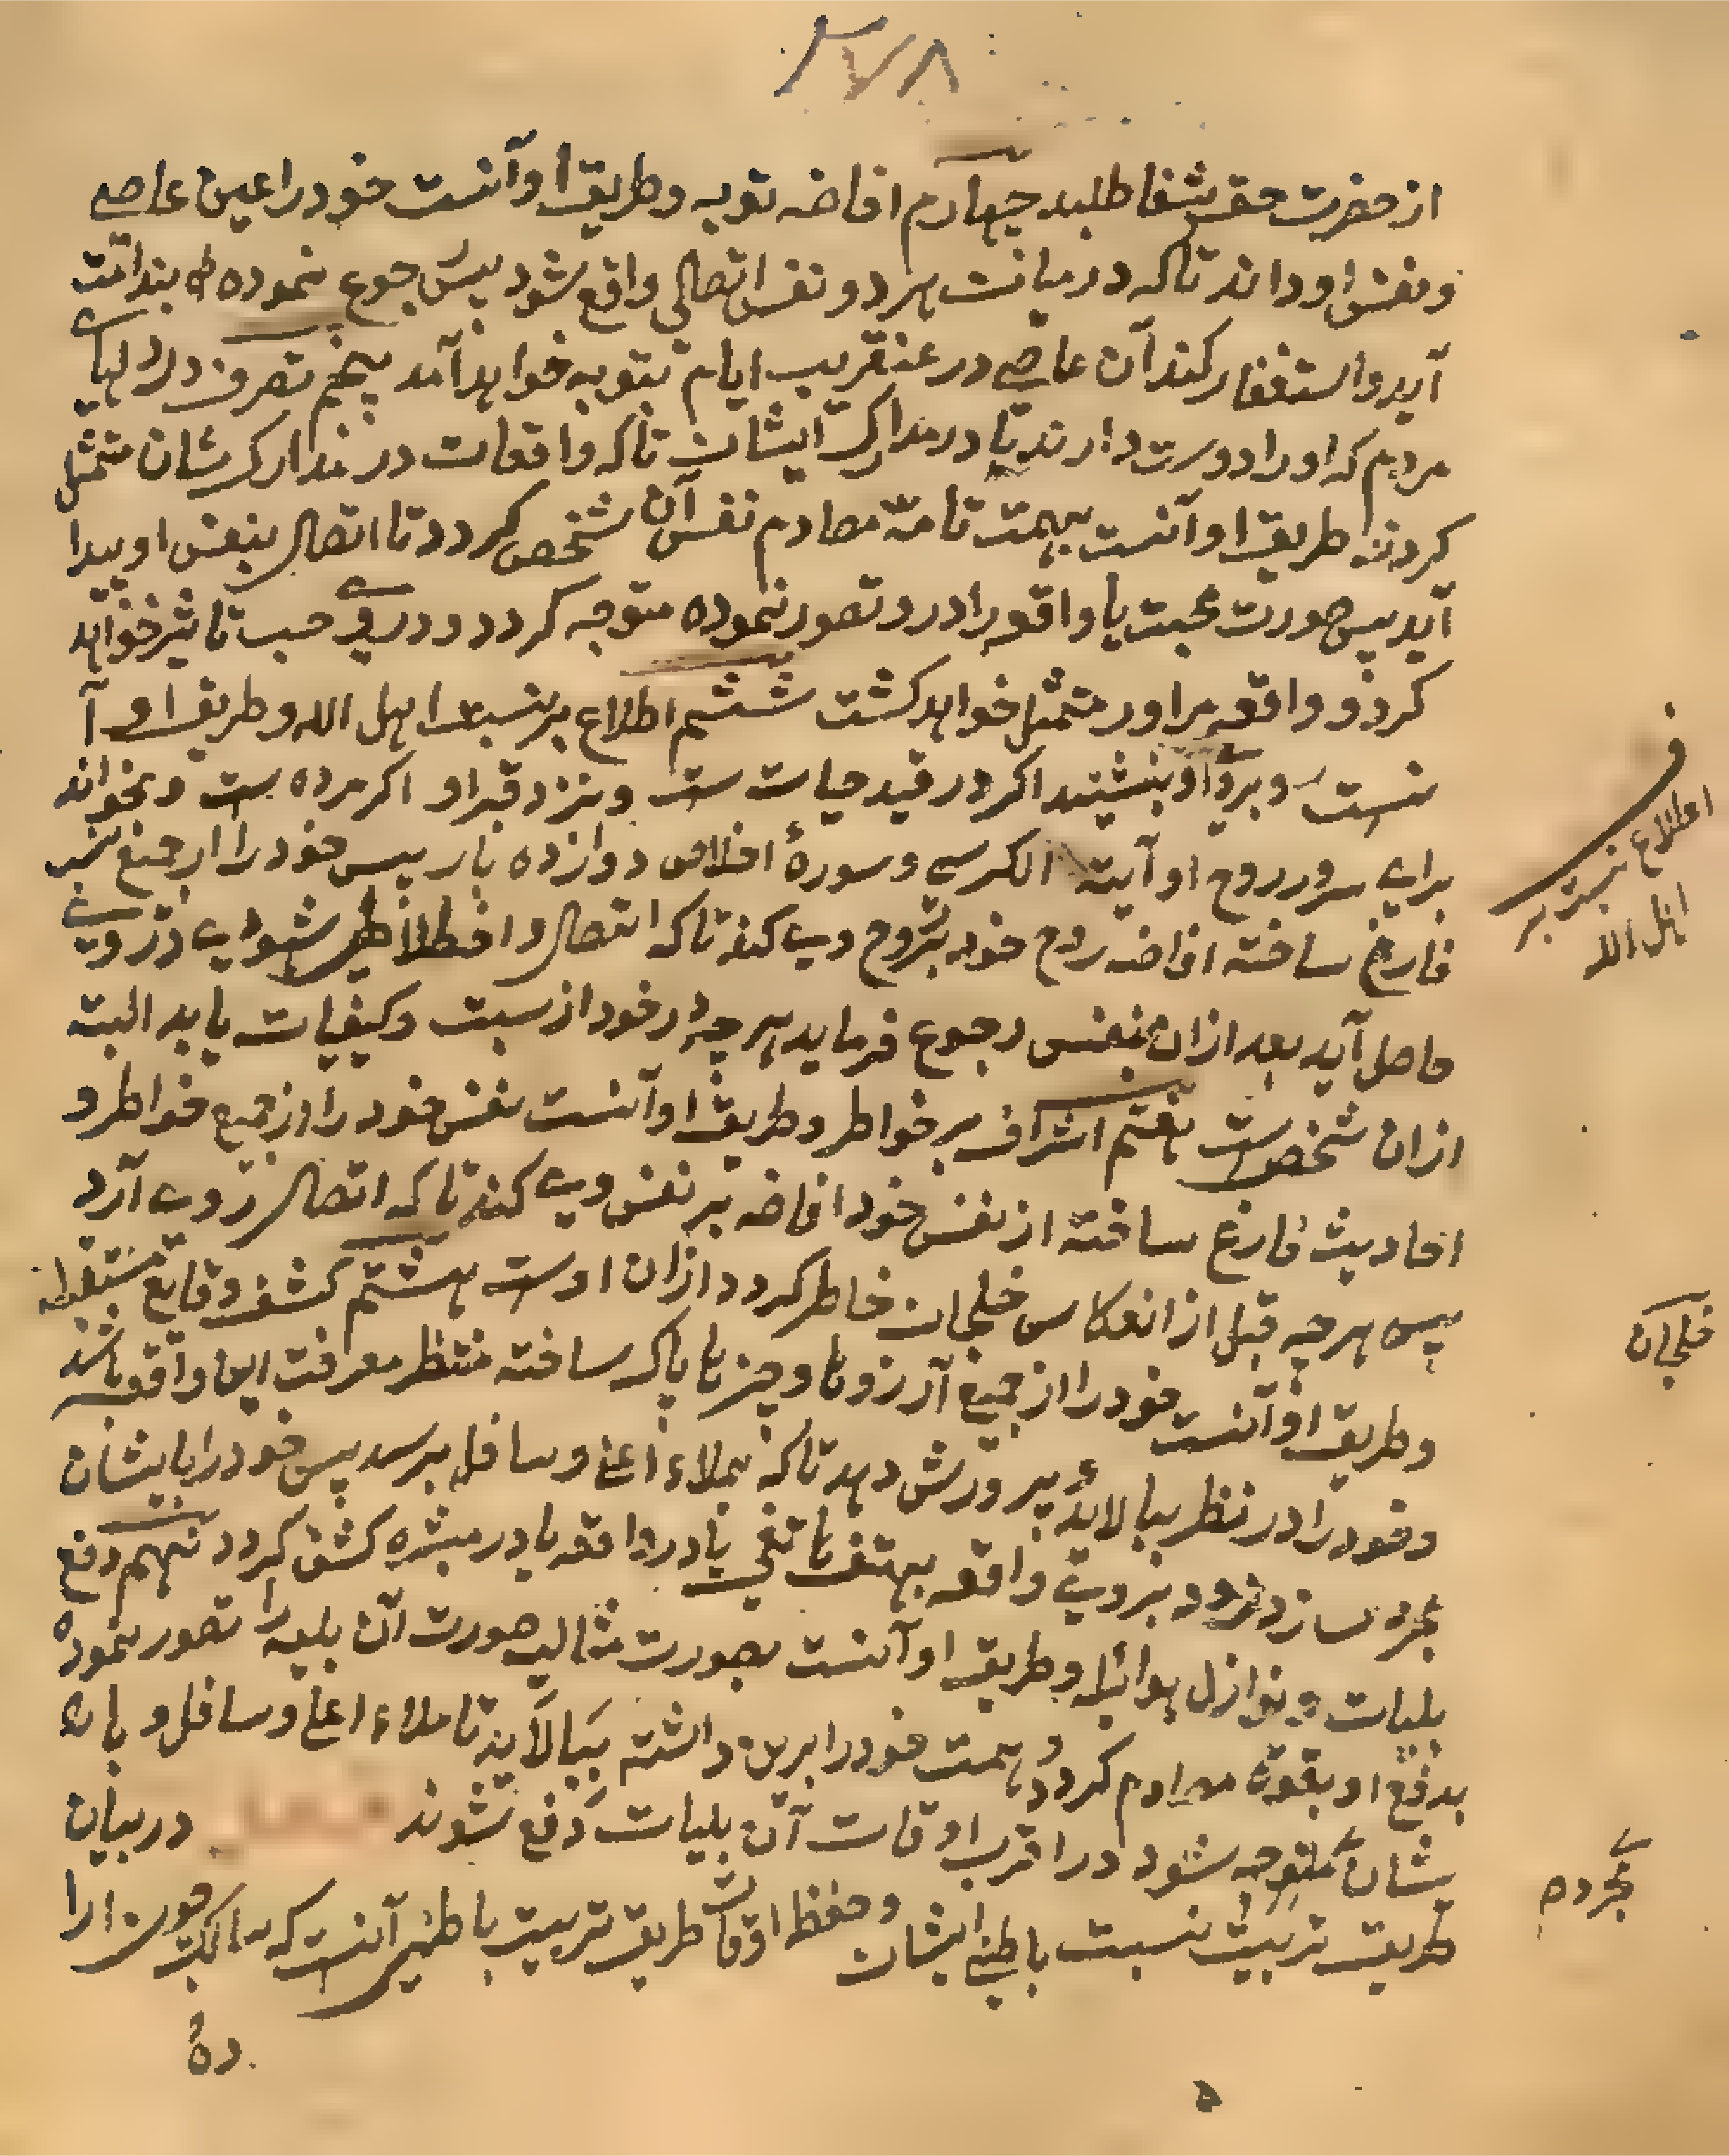 ۲۷۸
از حضرت حق شفا طلبد چهارم افاضه توبه و طریق او آنست خود را عین عاصے
و نفس او داند تاکه درمیانت هر دو نفس اتصالی واقع شود پس رجوع نموده بندامت
آید و استغفار کند آن عاصے در عنقریب ایام بتوبه خواهد آمد پنجم تصرف در دلهاے
مردم که او را دوست دارند یا در مدارک ایشان تاکه واقعات در مدارک شان متمثل
کردند طریق او آنست بهمت تامّه مصادم نفس آن شخص کردد تا اتصال بنفس او پیدا
آید پس صورت محبت یا واقعه را در و تصور نموده متوجه کردد و در وے حب تاثیر خواهد
کرد و واقعه مر او را متمثل خواهد کشت ششم اطلاع بر نسبت اهل الله و طریق او آ
نست روبروے او بنشیند اکر در قید حیات ست و بنزد قبر او اکر مرده ست و بخواند
براے سرور روح او آیت الکرسے و سورهٔ اخلاص دوازده بار پس خود را از جمیع نسب
فارغ ساخته افاضه روح خود بروح وے کند تاکه اتصال و اختلاط شود اے در وے
حاصل آید بعد ازان بنفس رجوع فرماید هر چه در خود از نسبت و کیفیات یابد البته
ازان شخص ست هفتم اشراف بر خواطر و طریق او آنست نفس خود را از جمیع خواطر و
احادیث فارغ ساخته از نفس خود افاضه بر نفس وے کند تاکه اتصال رو وے آرد
پس هر چه قبل از انعکاس خلجان خاطر کردد ازان اوست هشتم کشف وقایع مستقبله
و طریق او آنست خود را از جمیع آرزوها و چیزها پاک ساخته منتظر معرفت این واقعه باشد
و خود را در نظر ببالاید پرورش دهد تاکه بملاء اعلے و سافل برسد پس خود را بایشان
مجرد سازد زود بروے واقعه بهتف هاتفے یا در واقعه یا در مبشره کشف کردد نهم دفع
بلیات و نوازل هوائل و طریق او آنست بصورت مثالیه صورت آن بلیه را تصور نموده
بدفع او بقوة مصادم کردد و همت خود را برین داشته ببالاید تا ملاء اعلے و سافل و باره
یشان متوجه شود در اقرب اوقات آن بلیات دفع شوند در بیان
طریق تربیت نسبت باطنے ایشان و حفظ اوقات طریق تربیت باطنے آنست که سالک چون ارا
دهٔ
ف
اطلاع نسبت بر
اهل الله
خلجان
مجرده